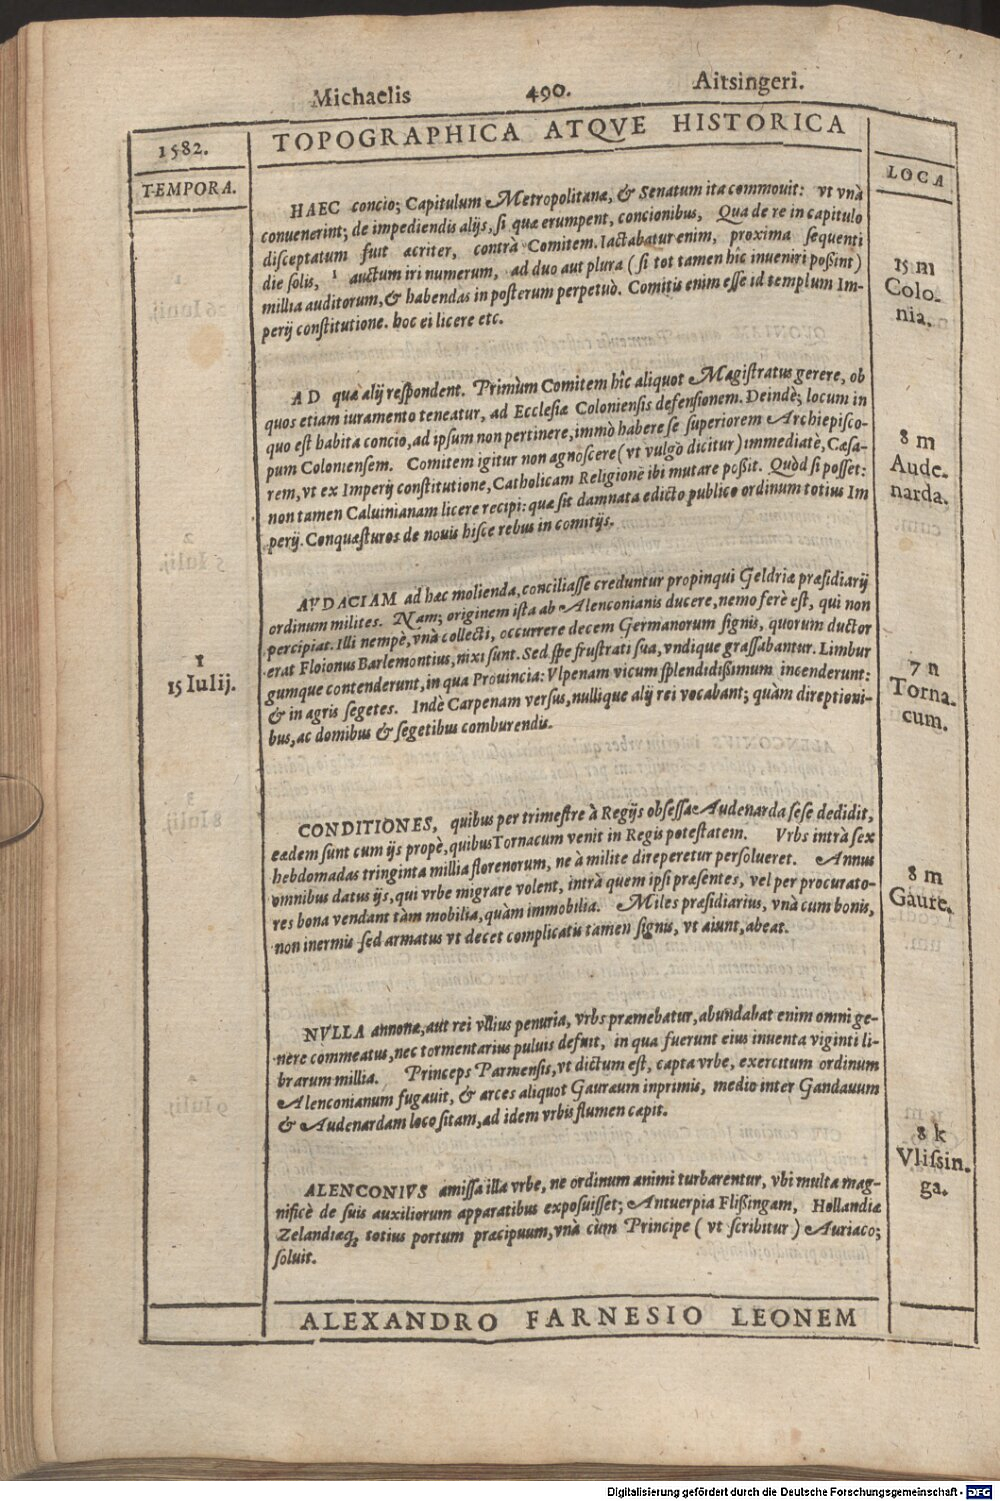 Michaelis 490. Aitsingeri.
1582. TOPOGRAPHICA ATQVE HISTORICA
TEMPORA.
LOCA
HAEC concio; Capitulum Metropolitanæ, & Senatum ita commouit: vt vnà
conuenerint; de impediendis alijs, si quæ erumpent, concionibus, Qua de re in capitulo
disceptatum fuit acriter, contrà Comitem. Iactabatur enim, proxima sequenti
die solis, ¹ auctum iri numerum, ad duo aut plura (si tot tamen hîc inueniri poßint)
millia auditorum, & habendas in posterum perpetuò. Comitis enim esse id templum Im-
perij constitutione. hoc ei licere etc.
15 m
Colo-
nia.
AD quæ alij respondent. Primùm Comitem hîc aliquot Magistratus gerere, ob
quos etiam iuramento teneatur, ad Ecclesiæ Coloniensis defensionem. Deindè; locum in
quo est habita concio, ad ipsum non pertinere, immò habere se superiorem Archiepisco-
pum Coloniensem. Comitem igitur non agnoscere (vt vulgò dicitur) immediatè, Cæsa-
rem, vt ex Imperij constitutione, Catholicam Religionē ibi mutare poßit. Quòd si posset:
non tamen Caluinianam licere recipi: quæ sit damnata edicto publico ordinum totius Im
perij. Conquæsturos de nouis hisce rebus in comitijs.
8 m
Aude-
narda.
AVDACIAM ad hæc molienda, conciliasse creduntur propinqui Geldriæ præsidiarij
ordinum milites. Nam; originem ista ab Alenconianis ducere, nemo ferè est, qui non
percipiat. Illi nempè, vnà collecti, occurrere decem Germanorum signis, quorum ductor
erat Floionus Barlemontius, nixi sunt. Sed spe frustrati sua, vndique grassabantur. Limbur
gumque contenderunt, in qua Prouincia: Vlpenam vicum splendidißimum incenderunt:
& in agris segetes. Indè Carpenam versus, nullique alij rei vocabant; quàm direptioni-
bus, ac domibus & segetibus comburendis.
1
15 Iulij.
7 n
Torna-
cum.
CONDITIONES, quibus per trimestre à Regijs obsessa Audenarda sese dedidit,
eædem sunt cum ijs propè, quibus Tornacum venit in Regis potestatem. Vrbs intrà sex
hebdomadas tringinta millia florenorum, ne à milite direperetur persolueret. Annus
omnibus datus ijs, qui vrbe migrare volent, intrà quem ipsi præsentes, vel per procurato-
res bona vendant tàm mobilia, quàm immobilia. Miles præsidiarius, vnà cum bonis,
non inermis sed armatus vt decet complicatis tamen signis, vt aiunt, abeat.
8 m
Gaure.
NVLLA annonæ, aut rei vllius penuria, vrbs præmebatur, abundabat enim omni ge-
nere commeatus, nec tormentarius puluis defuit, in qua fuerunt eius inuenta viginti li-
brarum millia. Princeps Parmensis, vt dictum est, capta vrbe, exercitum ordinum
Alenconianum fugauit, & arces aliquot Gauraum inprimis, medio inter Gandauum
& Audenardam loco sitam, ad idem vrbis flumen capit.
8 k
Vlissin-
ga.
ALENCONIVS amissa illa vrbe, ne ordinum animi turbarentur, vbi multa mag-
nificè de suis auxiliorum apparatibus exposuisset; Antuerpia Flißingam, Hollandiæ
Zelandiæq; totius portum præcipuum, vnà cùm Principe (vt scribitur) Auriaco;
soluit.
ALEXANDRO FARNESIO LEONEM
Digitalisierung gefördert durch die Deutsche Forschungsgemeinschaft - DFG